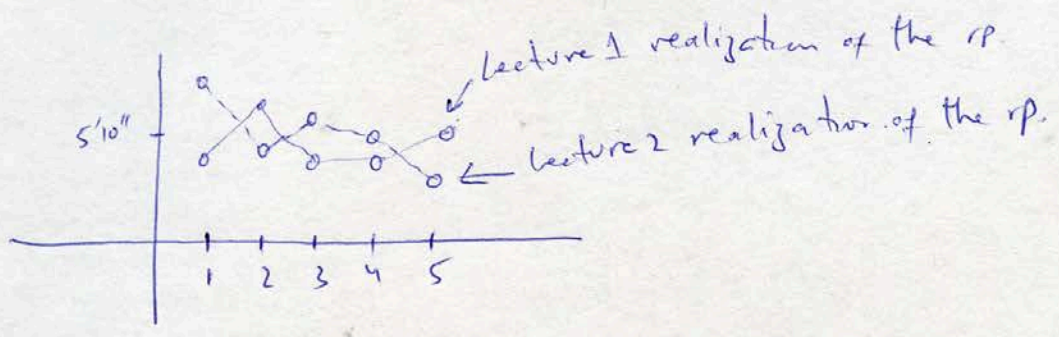 Lecture 1 realization of the rp.
5'10"
Lecture 2 realization of the rp.
1 2 3 4 5